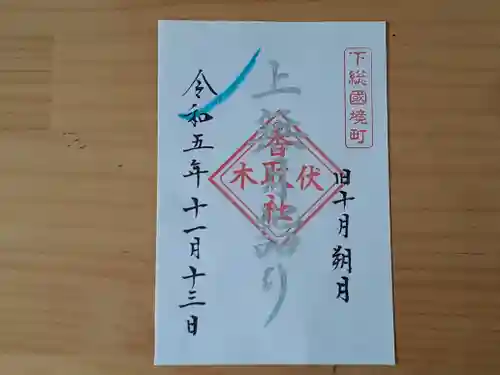 下総國境町
旧十月朔月
上弦月詣り
香取社
伏木
令和五年十一月十三日